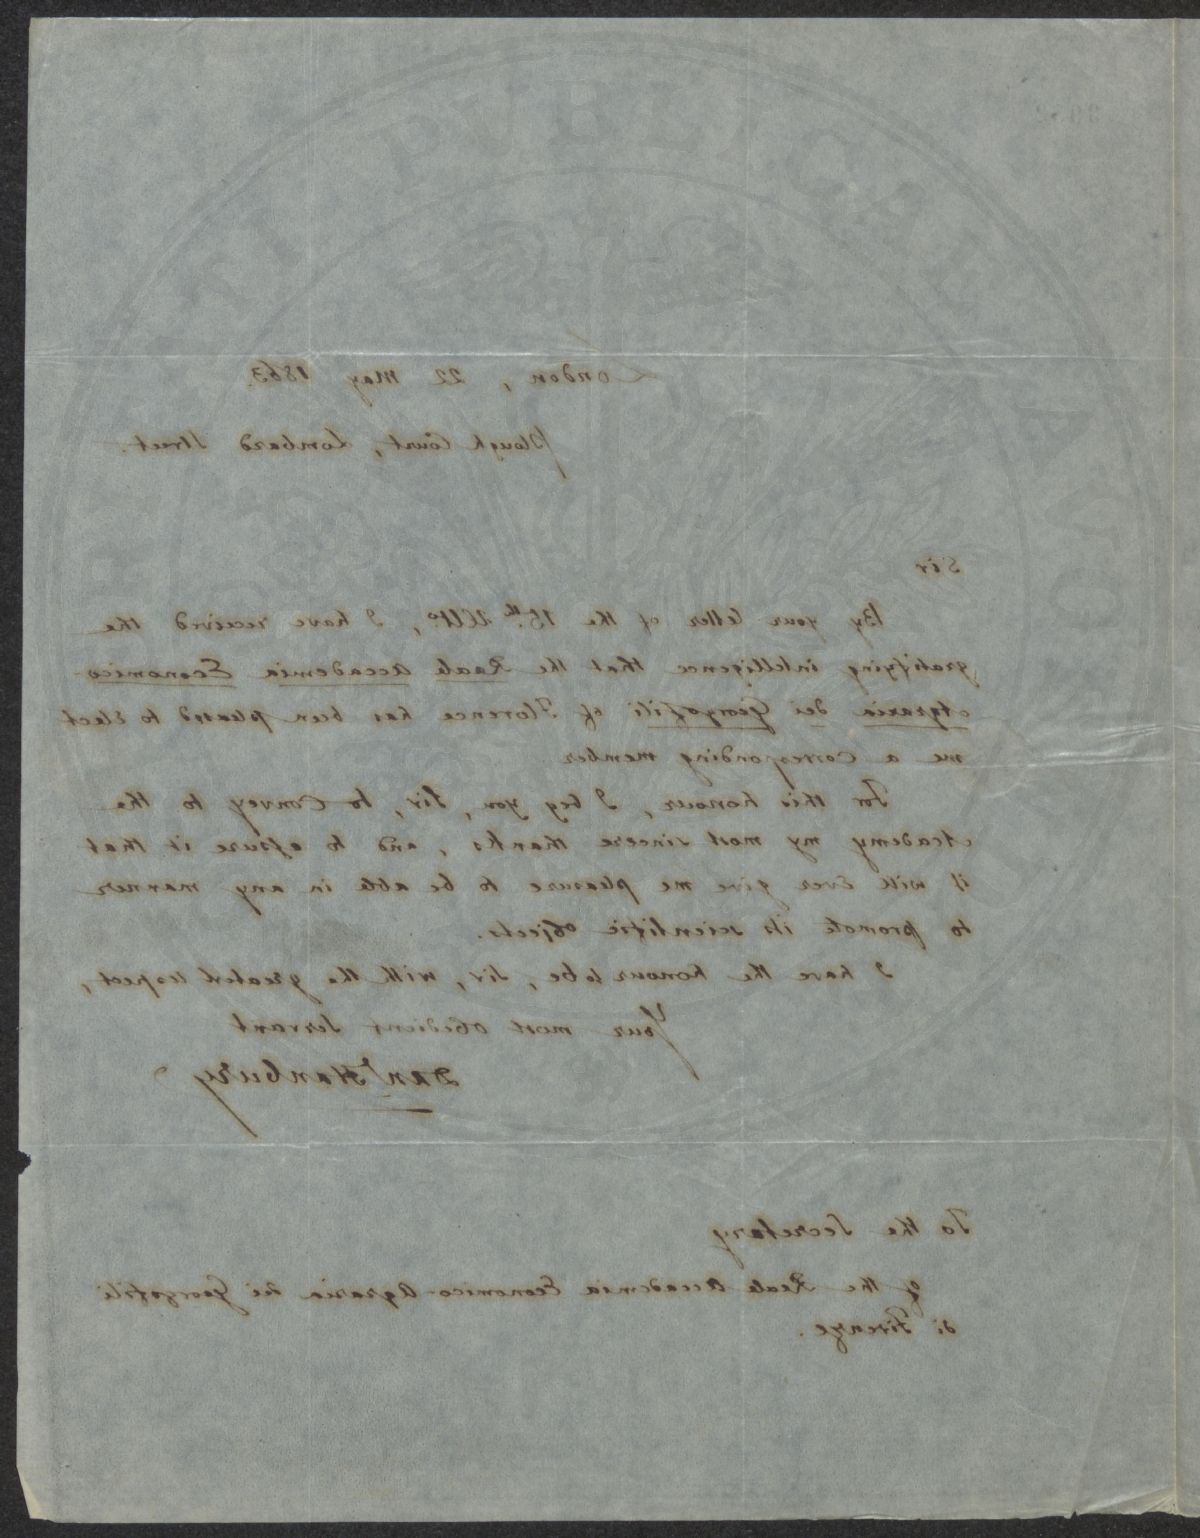 London, 22 May 1863.
Plough Court, Lombard Street.
Sir
By your letter of the 15th. Ulto., I have received the
gratifying intelligence that the Reale Accademia Economico-
Agraria dei Georgofili of Florence has been pleased to elect
me a corresponding member
For this honour, I beg you, Sir, to convey to the
Academy my most sincere thanks, and to assure it that
it will ever give me pleasure to be able in any manner
to promote its scientific objects.
I have the honour to be, Sir, with the greatest respect,
Your most obedient Servant
Danl Hanbury
To the Secretary
of the Reale Accademia Economico-Agraria dei Georgofili
di Firenze.